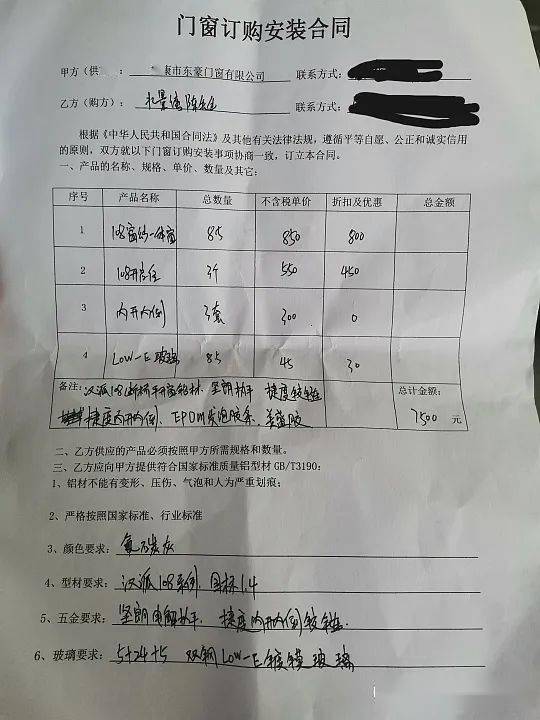 门窗订购安装合同
甲方(供 : 康市东豪门窗有限公司 联系方式:
乙方(购方): 陈 联系方式:
根据《中华人民共和国合同法》及其他有关法律法规,遵循平等自愿、公正和诚实信用
的原则,双方就以下门窗订购安装事项协商一致,订立本合同。
一、产品的名称、规格、单价、数量及其它:
序号 产品名称 总数量 不含税单价 折扣及优惠 总金额
1 108窗纱一体窗 85 850 800
2 108开启扇 3个 550 450
3 内开内倒 3套 300 0
4 LOW-E玻璃 85 45 30
备注: 汉派108断桥平开窗铝材、坚朗执手 捷度铰链 总计金额:
捷度内开内倒、EPDM发泡胶条、 胶 7500 元
二、乙方供应的产品必须按照甲方所需规格和数量。
三、乙方应向甲方提供符合国家标准质量铝型材GB/T3190:
1、铝材不能有变形、压伤、气泡和人为严重划痕;
2、严格按照国家标准、行业标准
3、颜色要求: 氟碳灰
4、型材要求: 汉派108系列、国标1.4
5、五金要求: 坚朗 执手、捷度内开内倒铰链.
6、玻璃要求: 5+24+5 双钢LOW-E镀膜玻璃